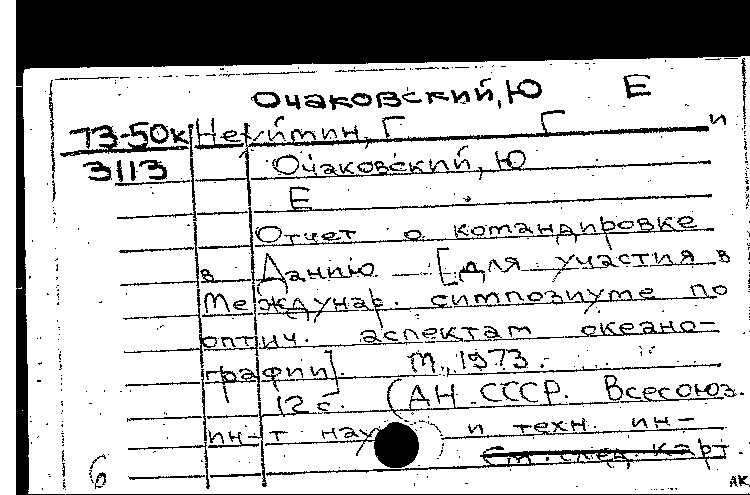 Очаковский, Ю Е
73-50к Неуймин, Г Г и
3113 Очаковский, Ю
Е
Отчет о командировке
в Данию [для участия в
Междунар. симпозиуме по
оптич. аспектам океано-
графии]. М., 1973.
12 с. (АН СССР. Всесоюз.
ин-т науч и техн. ин-
См. след. карт
6 АК